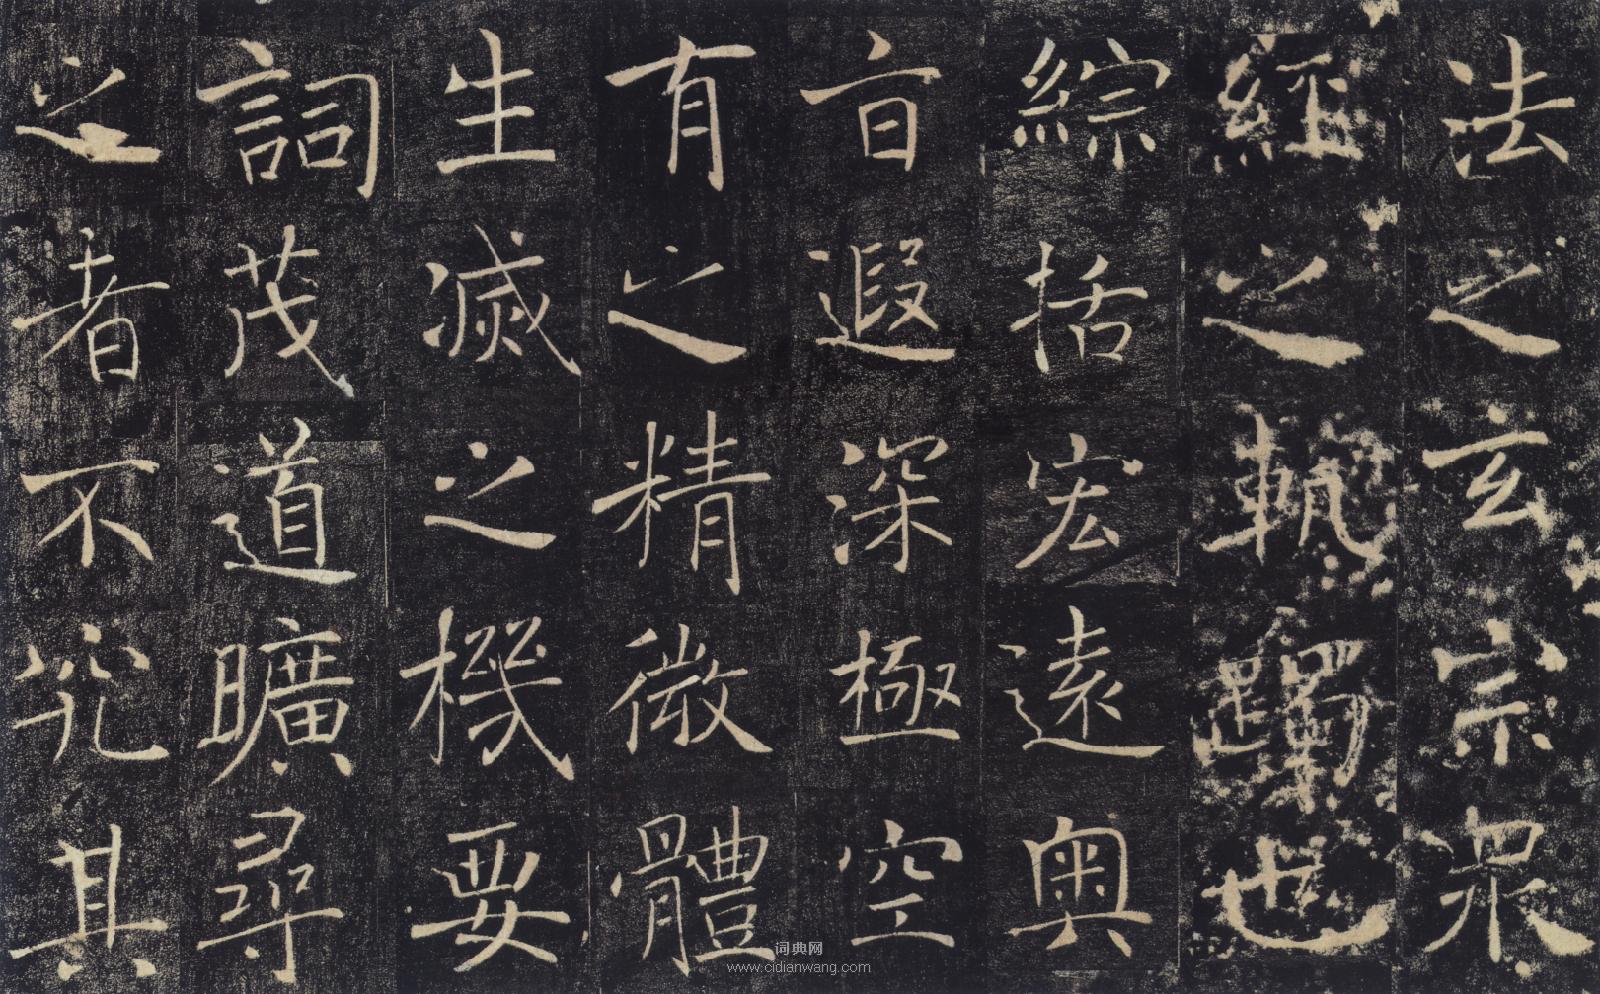 法之玄宗眾
經之軌躅也
綜括宏遠奧
旨遐深極空
有之精微體
生滅之機要
詞茂道曠尋
之者不究其
词典网
www.cidianwang.com